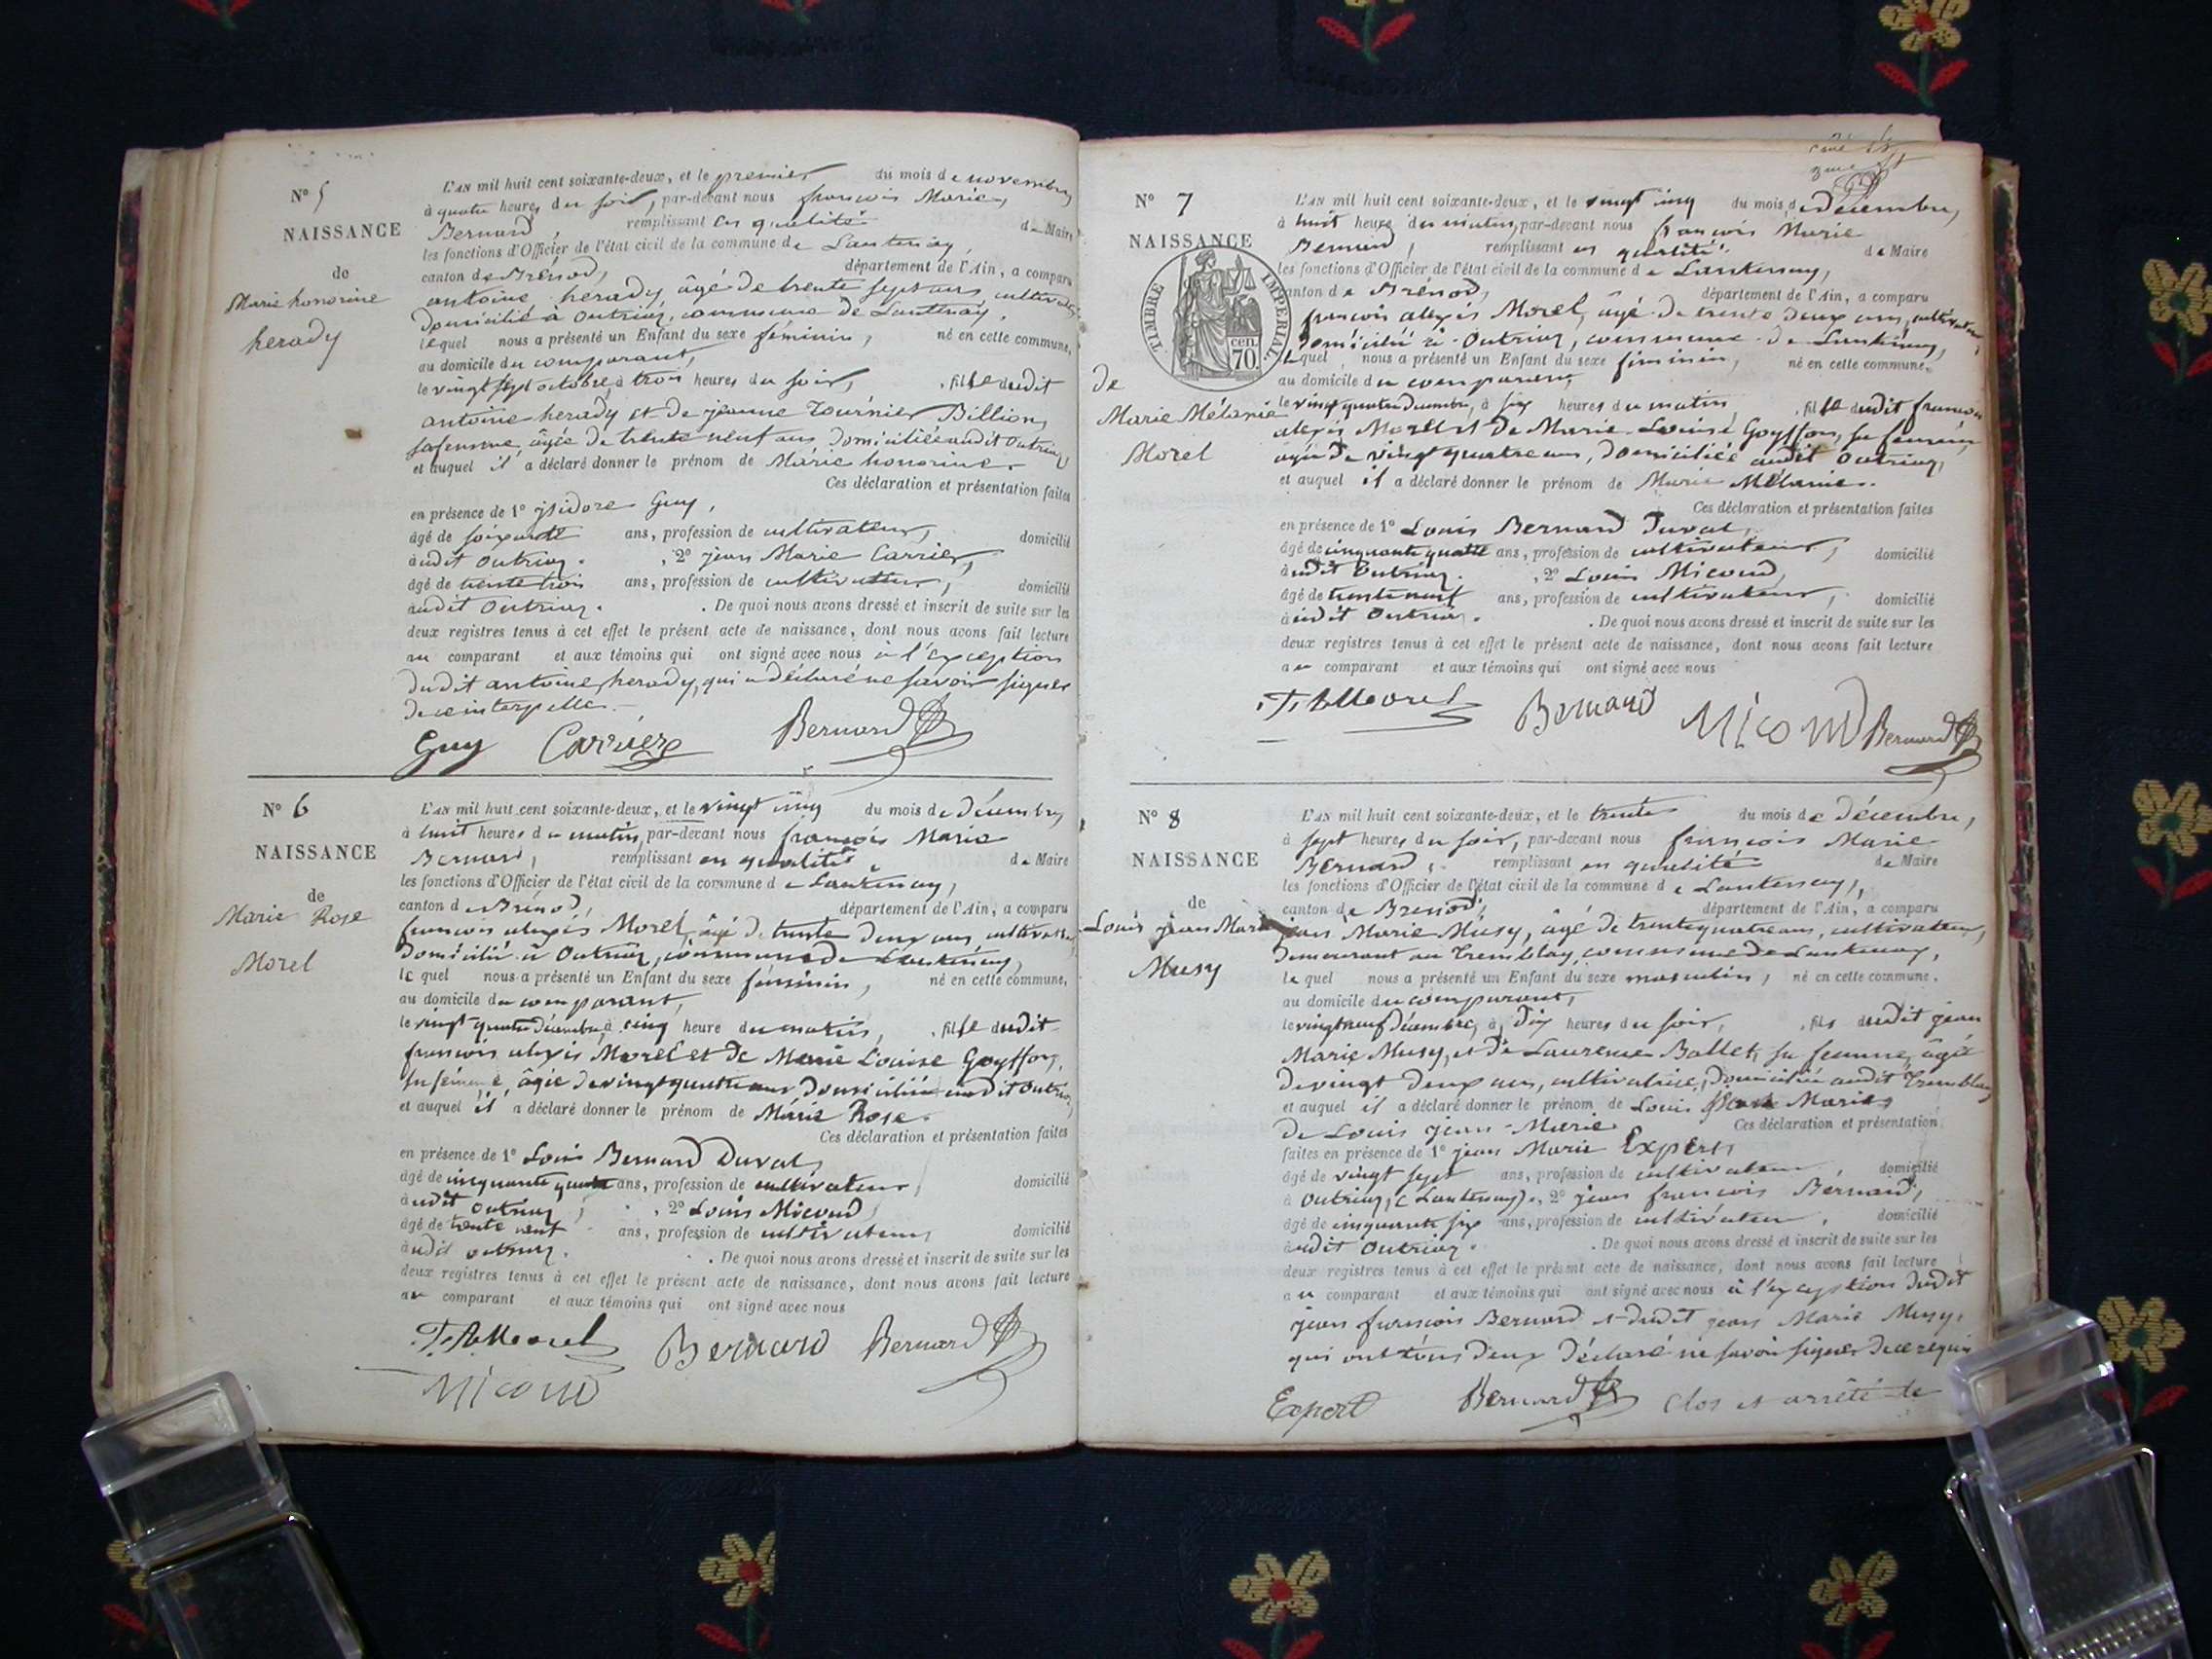 N° 5
NAISSANCE
de
Marie honorine
herady
L'AN mil huit cent soixante-deux, et le premier du mois de novembre,
à quatre heures du soir, par-devant nous françois Marie
Bernard, remplissant en qualité de Maire
les fonctions d'Officier de l'état civil de la commune de Lantenay,
canton de Brénod, département de l'Ain, a comparu
antoine herady âgé de trente sept ans, cultivateur
domicilié à Outriaz, commune de Lantenay,
lequel nous a présenté un Enfant du sexe féminin, né en cette commune,
au domicile du comparant,
le vingt sept octobre, à trois heures du soir, fille dudit
antoine herady et de jeanne Tournier Billion,
sa femme, âgée de trente neuf ans domiciliée audit Outriaz,
et auquel il a déclaré donner le prénom de Marie honorine.
Ces déclaration et présentation faites
en présence de 1° jsidore Guy,
âgé de soixante ans, profession de cultivateur, domicilié
audit Outriaz. , 2° jean Marie Carrier,
âgé de trente trois ans, profession de cultivateur, domicilié
audit Outriaz. . De quoi nous avons dressé et inscrit de suite sur les
deux registres tenus à cet effet le présent acte de naissance, dont nous avons fait lecture
au comparant et aux témoins qui ont signé avec nous à l'exception
dudit antoine herady, qui a déclaré ne savoir signer
de ce interpellé.
Guy Carrier Bernard
N° 6
NAISSANCE
de
Marie Rose
Morel
L'AN mil huit cent soixante-deux, et le vingt cinq du mois de décembre,
à huit heures du matin, par-devant nous françois Marie
Bernard, remplissant en qualité de Maire
les fonctions d'Officier de l'état civil de la commune de Lantenay,
canton de Brénod, département de l'Ain, a comparu
françois alexis Morel, âgé de trente deux ans, cultivateur,
domicilié à Outriaz, commune de Lantenay,
lequel nous a présenté un Enfant du sexe féminin, né en cette commune,
au domicile du comparant,
le vingt quatre décembre, à cinq heure du matin, fille dudit
françois alexis Morel et de Marie Louise Goyffon,
sa femme, âgée de vingt quatre ans domiciliée audit Outriaz,
et auquel il a déclaré donner le prénom de Marie Rose.
Ces déclaration et présentation faites
en présence de 1° Louis Bernard Duval,
âgé de cinquante quatre ans, profession de cultivateur, domicilié
audit Outriaz, , 2° Louis Micoud,
âgé de trente neuf ans, profession de cultivateur, domicilié
audit outriaz. . De quoi nous avons dressé et inscrit de suite sur les
deux registres tenus à cet effet le présent acte de naissance, dont nous avons fait lecture
au comparant et aux témoins qui ont signé avec nous
F. A Morel Bernard Bernard
Micoud
N° 7
NAISSANCE
TIMBRE IMPERIAL.
70 cen.
de
Marie Mélanie
Morel
L'AN mil huit cent soixante-deux, et le vingt cinq du mois de décembre,
à huit heure du matin, par-devant nous françois Marie
Bernard, remplissant en qualité de Maire
les fonctions d'Officier de l'état civil de la commune de Lantenay,
canton de Brénod, département de l'Ain, a comparu
françois alexis Morel, âgé de trente deux ans, cultivateur,
domicilié à Outriaz, commune de Lantenay,
lequel nous a présenté un Enfant du sexe féminin, né en cette commune,
au domicile du comparant,
le vingt quatre décembre, à six heures du matin, fille dudit françois
alexis Morel et de Marie Louise Goyffon, sa femme,
âgée de vingt quatre ans, domiciliée audit Outriaz,
et auquel il a déclaré donner le prénom de Marie Mélanie.
Ces déclaration et présentation faites
en présence de 1° Louis Bernard Duval,
âgé de cinquante quatre ans, profession de cultivateur, domicilié
audit Outriaz. , 2° Louis Micoud,
âgé de trente neuf ans, profession de cultivateur, domicilié
audit Outriaz. . De quoi nous avons dressé et inscrit de suite sur les
deux registres tenus à cet effet le présent acte de naissance, dont nous avons fait lecture
au comparant et aux témoins qui ont signé avec nous
F. A Morel Bernard Micoud Bernard
N° 8
NAISSANCE
de
Louis jean Marie
Musy
L'AN mil huit cent soixante-deux, et le trente du mois de décembre,
à sept heures du soir, par-devant nous françois Marie
Bernard, remplissant en qualité de Maire
les fonctions d'Officier de l'état civil de la commune de Lantenay,
canton de Brénod, département de l'Ain, a comparu
jean Marie Musy, âgé de trente quatre ans, cultivateur,
demeurant au Tremblay, commune de Lantenay,
lequel nous a présenté un Enfant du sexe masculin, né en cette commune.
au domicile du comparant,
le vingt neuf décembre, à dix heures du soir, fils dudit jean
Marie Musy, et de Laurence Ballet, sa femme, âgée
de vingt deux ans, cultivatrice, domiciliée audit Tremblay,
et auquel il a déclaré donner le prénom de Louis Marie,
de Louis jean-Marie. Ces déclaration et présentation
faites en présence de 1° jean Marie Expert,
âgé de vingt sept ans, profession de cultivateur, domicilié
à Outriaz, (Lantenay), 2° jean françois Bernard,
âgé de cinquante six ans, profession de cultivateur, domicilié
audit Outriaz. . De quoi nous avons dressé et inscrit de suite sur les
deux registres tenus à cet effet le présent acte de naissance, dont nous avons fait lecture
au comparant et aux témoins qui ont signé avec nous à l'exception dudit
jean françois Bernard et dudit jean Marie Musy,
qui ont tous deux déclaré ne savoir signer de ce requis
Expert Bernard Clos et arrêté le